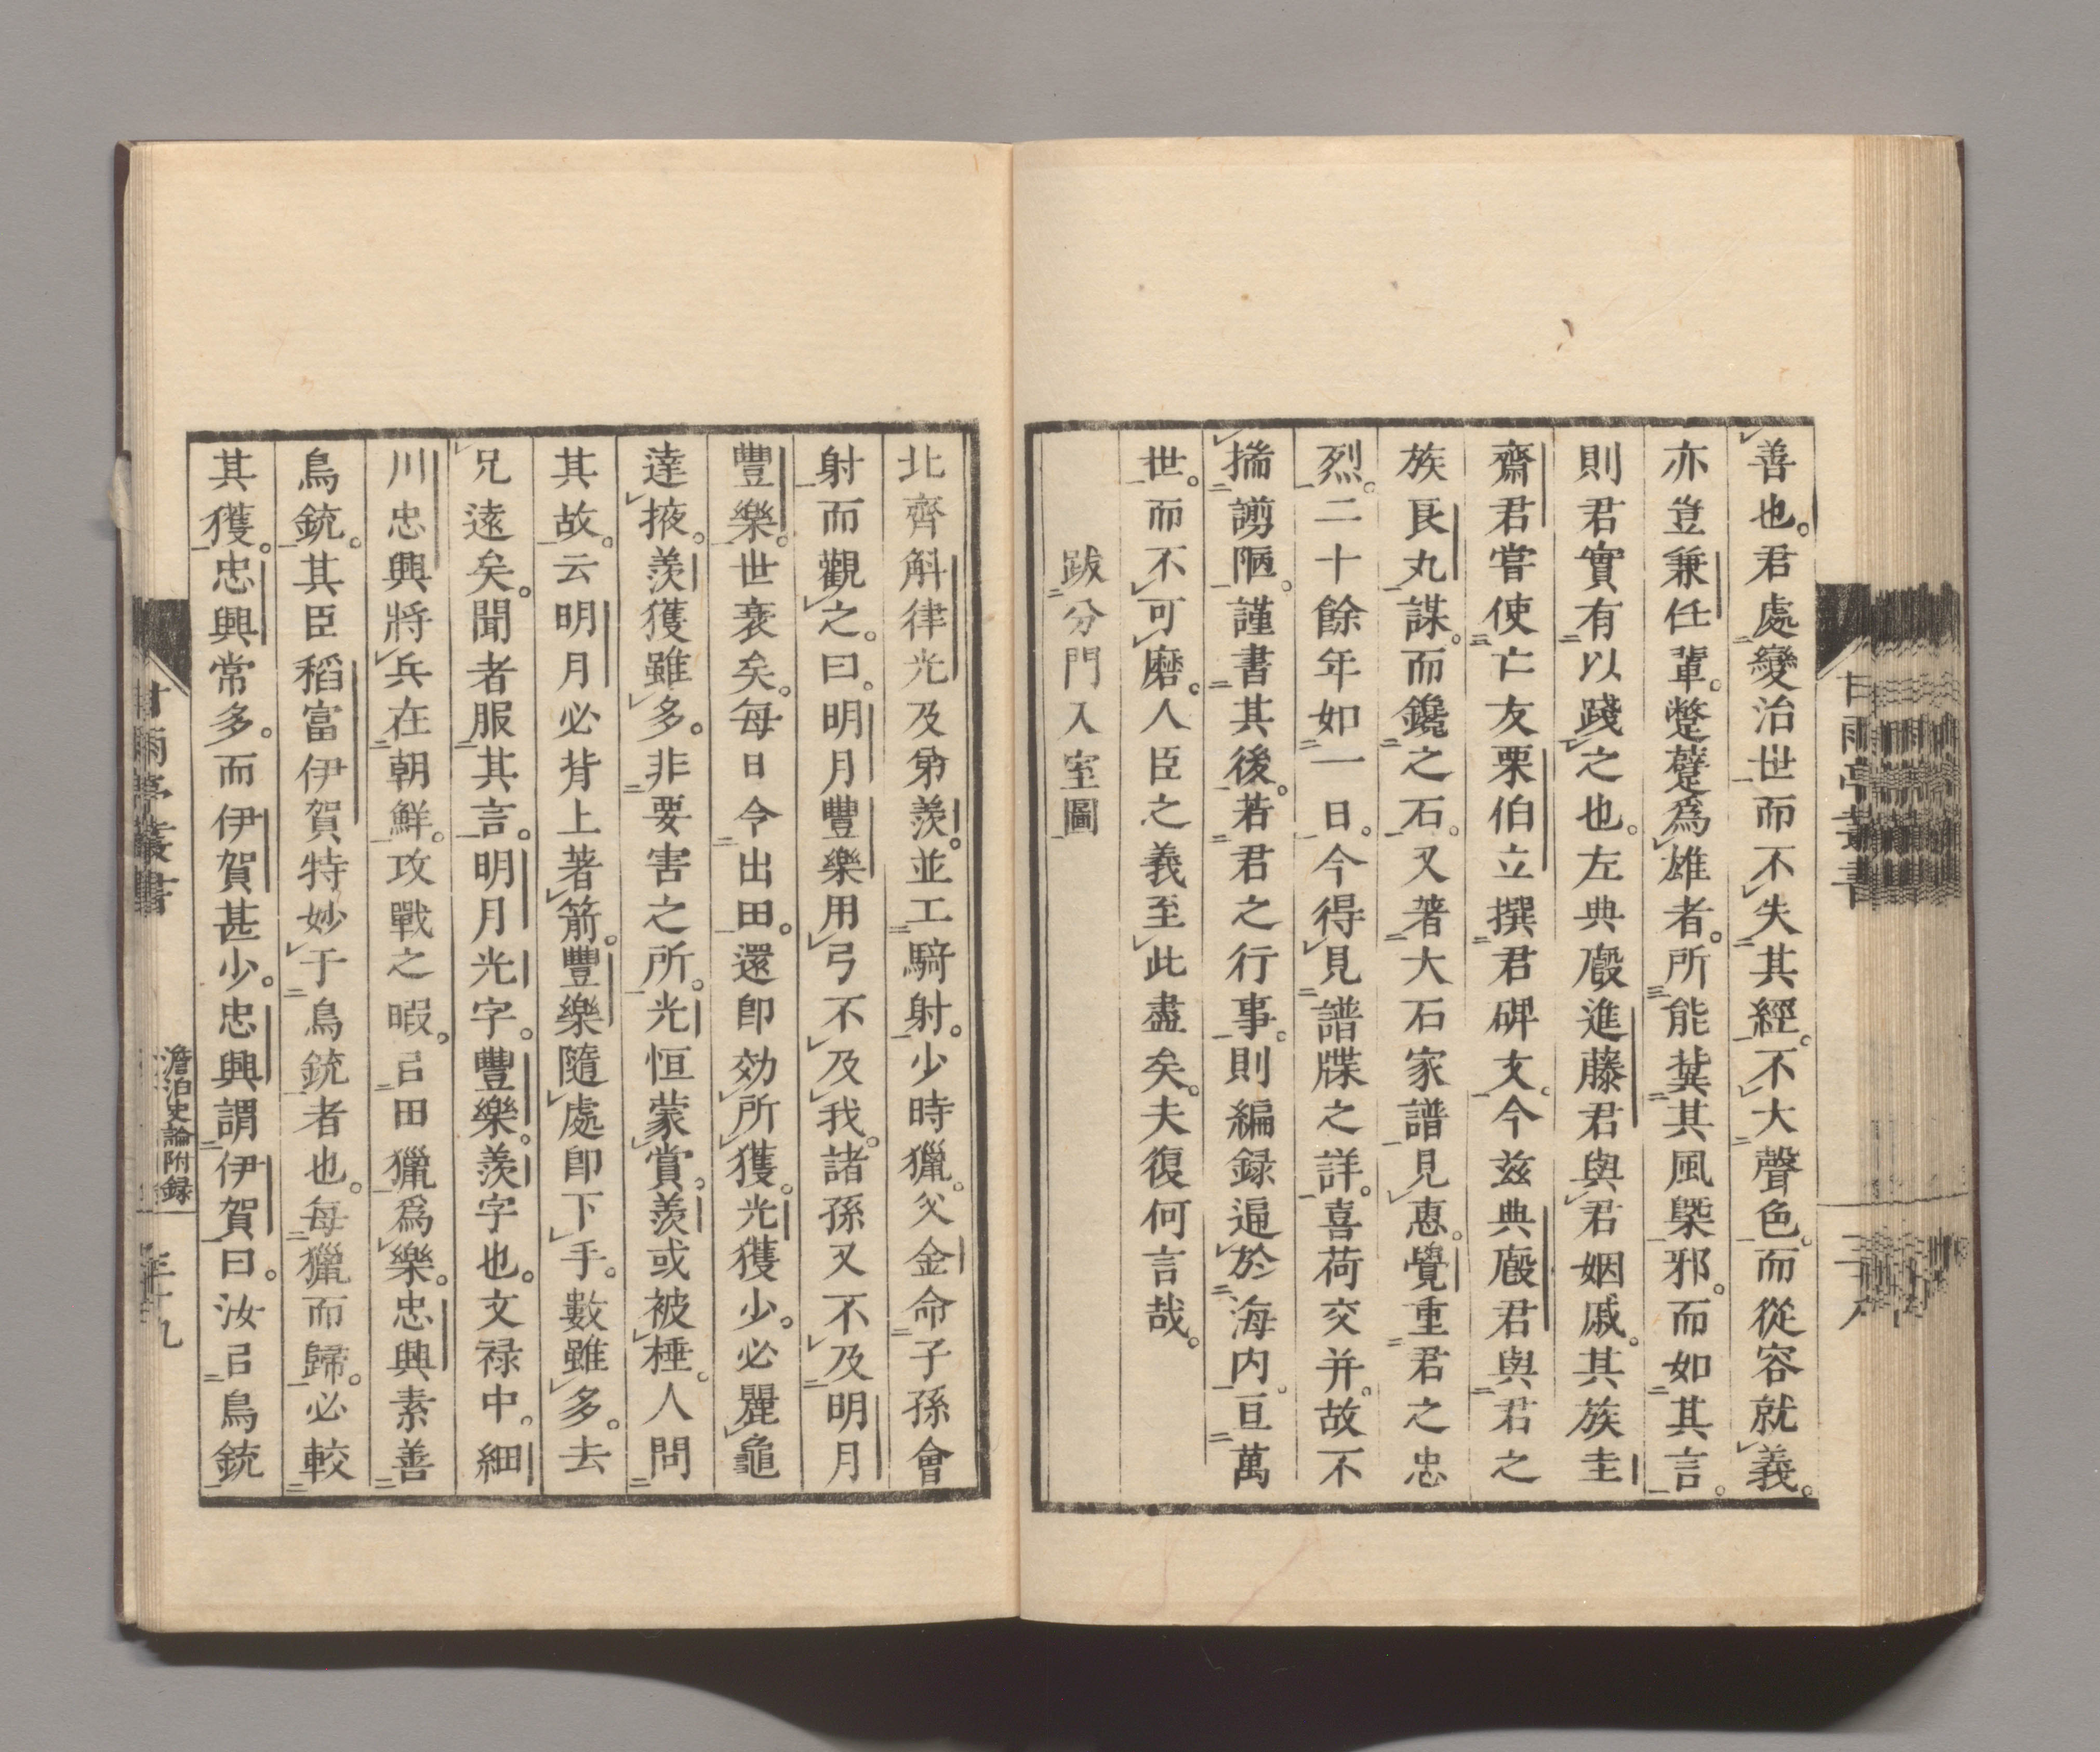 善也。君處變治世而不失其經。不大聲色。而從容就義。
亦豈兼任輩。蹩躠爲雄者。所能冀其風槩邪。而如其言。
則君實有以踐之也。左典廄進藤君與君姻戚。其族圭
齋君嘗使亡友栗伯立撰君碑文。今茲典廄君與君之
族艮丸謀。而鑱之石。又著大石家譜見惠。覺重君之忠
烈。二十餘年如一日。今得見譜牒之詳。喜荷交并。故不
揣謭陋。謹書其後。若君之行事。則編録遍於海内。亘萬
世。而不可磨。人臣之義至此盡矣。夫復何言哉。
跋分門入室圖
北齊斛律光及弟羨。並工騎射。少時獵。父金命子孫會
射而觀之。曰。明月豐樂用弓不及我。諸孫又不及明月
豐樂。世衰矣。每日令出田。還即効所獲。光獲少。必麗龜
達掖。羨獲雖多。非要害之所。光恒蒙賞。羨或被棰。人問
其故。云明月必背上著箭。豐樂隨處即下手。數雖多。去
兄遠矣。聞者服其言。明月光字。豐樂。羨字也。文禄中。細
川忠興將兵在朝鮮。攻戰之暇。㠯田獵爲樂。忠興素善
鳥銃。其臣稻富伊賀特妙于鳥銃者也。每獵而歸。必較
其獲。忠興常多。而伊賀甚少。忠興謂伊賀曰。汝㠯鳥銃
甘雨亭叢書
甘雨亭叢書
澹泊史論附録